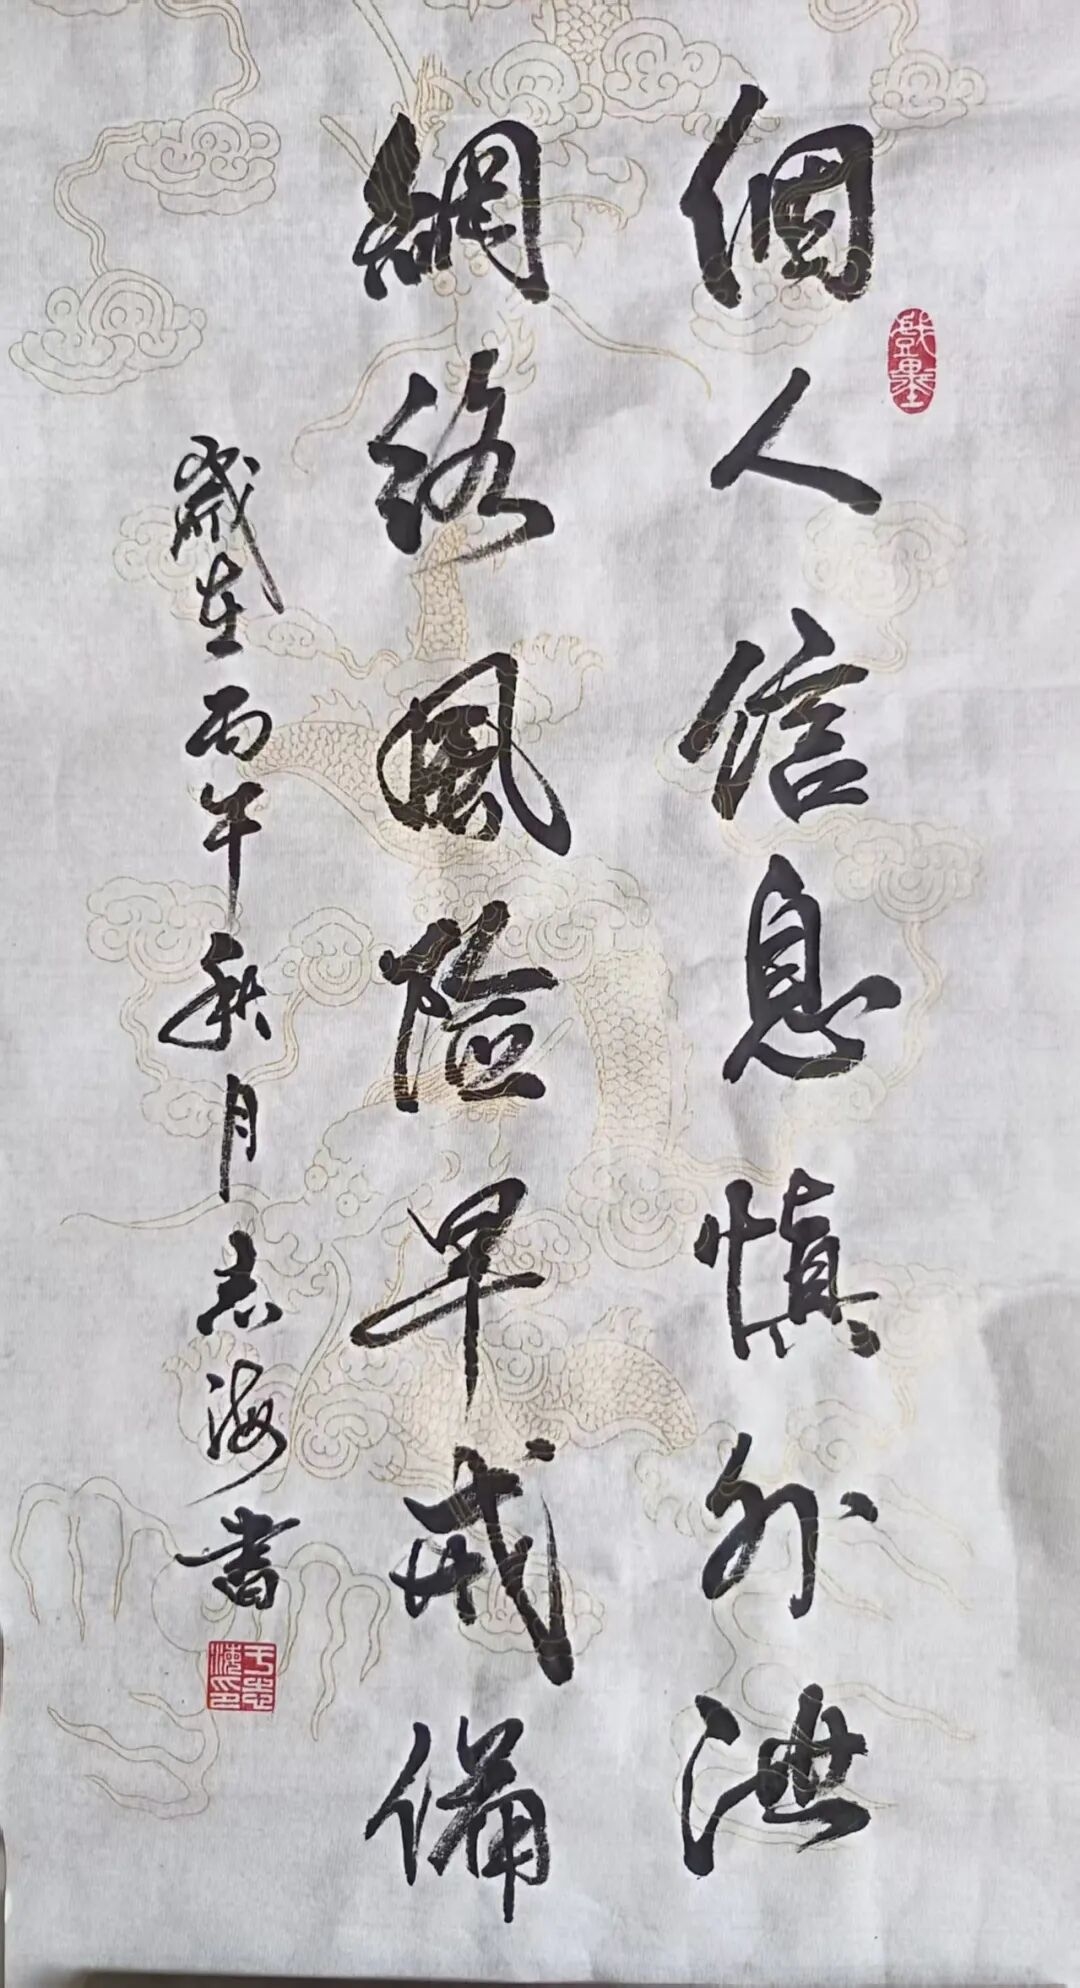 個人信息慎外泄
網絡風险早戒備
歲在丙午秋月志海書
戲墨